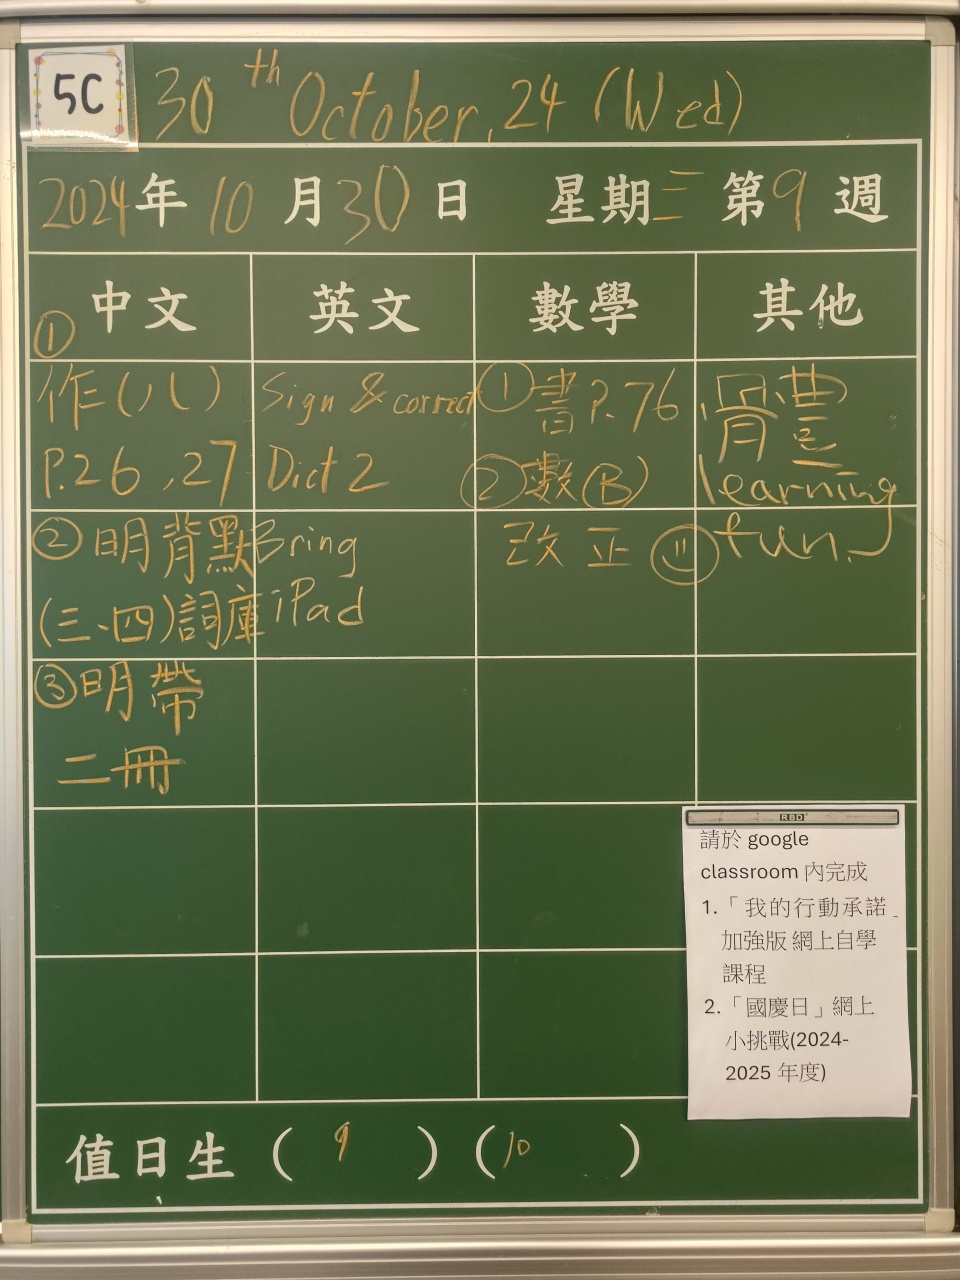 5C
30th October, 24 (Wed)
2024年10月30日 星期三 第9週
中文 英文 數學 其他
①
作(八)
P.26,27
②明背默
(三、四)詞庫
③明帶
二冊
Sign & correct
Dict 2
Bring
iPad
①書P.76
②數(B)
改正
體
learning
fun
RBD
請於 google
classroom 內完成
1.「我的行動承諾」
加強版 網上自學
課程
2.「國慶日」網上
小挑戰(2024-
2025 年度)
值日生 ( 9 ) ( 10 )